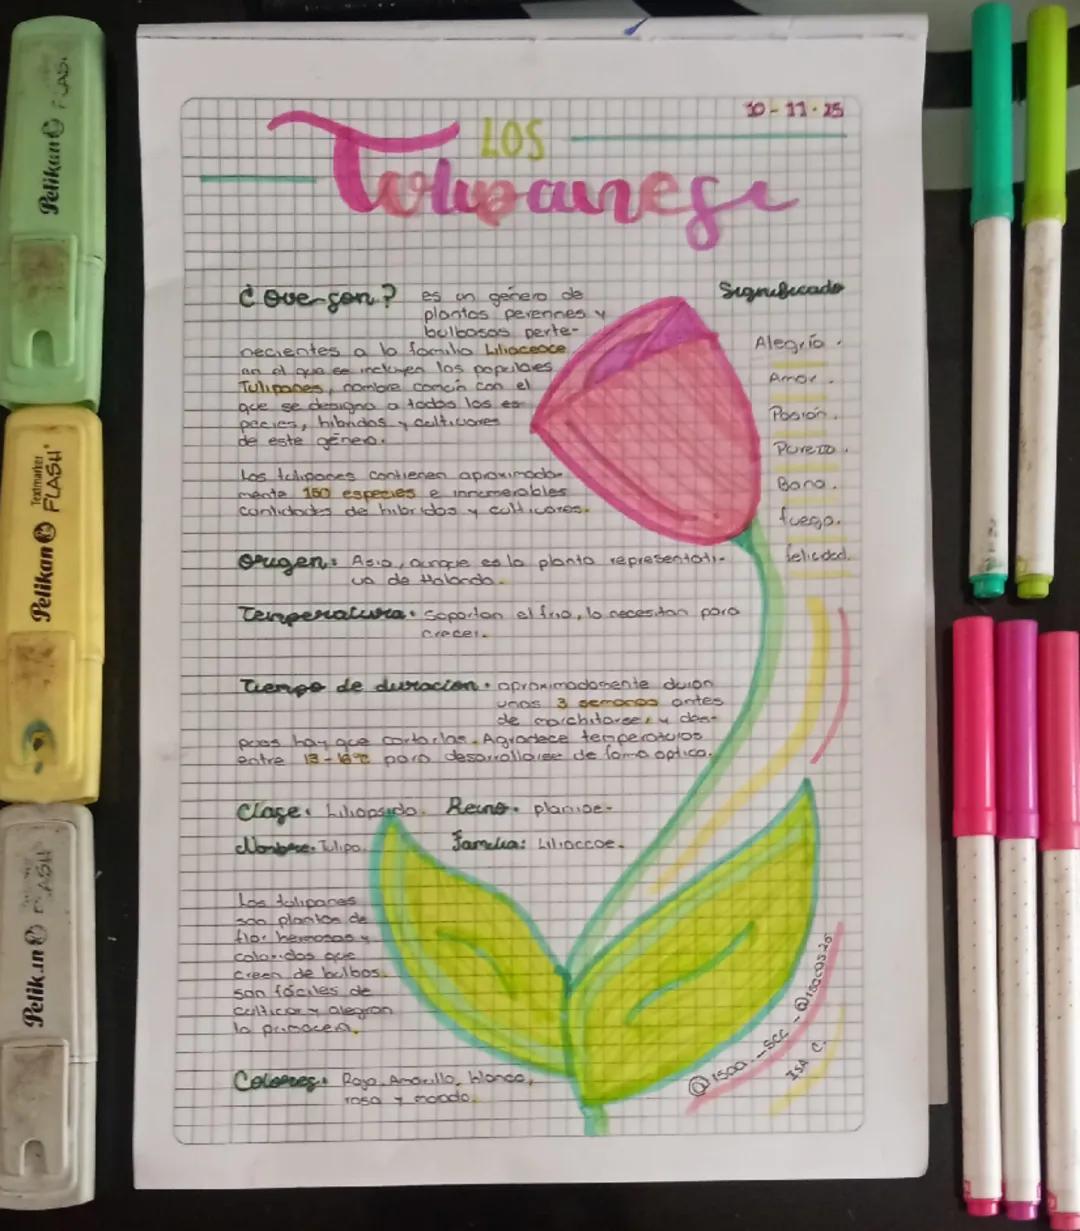 10-11-25
LOS
Tulipanes
¿Que son?
es un género de
plantas perennes y
bulbosas perte-
necientes a la familia Liliaceace
en el que se incluyen los populares
Tulipanes, nombre común con el
que se designa a todas las es
pecies, hibridos y cultivares
de este género.
Los tulipanes contienen aproximada-
mente 150 especies e innumerables
cantidades de hibridos y cultivares.
Origen: Asia, aunque es la planta representati-
va de Holanda.
Temperatura: soportan el frio, lo necesitan para
crecer.
Tiempo de duracion: aproximadamente duran
unas 3 semanas antes
de marchitarse, y des-
pues hay que cortarlas. Agradece temperaturas
entre 13-18°c para desarrollarse de forma optica.
Clase: Liliopsida. Reino: plantae.
Nombre: Tulipa. Familia: Liliaccae.
Los tulipanes
son plantas de
flor hermosas y
coloridas que
creen de bulbos.
son fáciles de
cultivar y alegran
la primavera.
Colores: Rojo, Amarillo, blanco,
rosa y morado.
Significado
Alegría.
Amor.
Pasión.
Pureza.
fuego.
felicidad.
ISA C.
Pelikan FLASH
Pelikan Textmarker FLASH
Pelikan FLASH